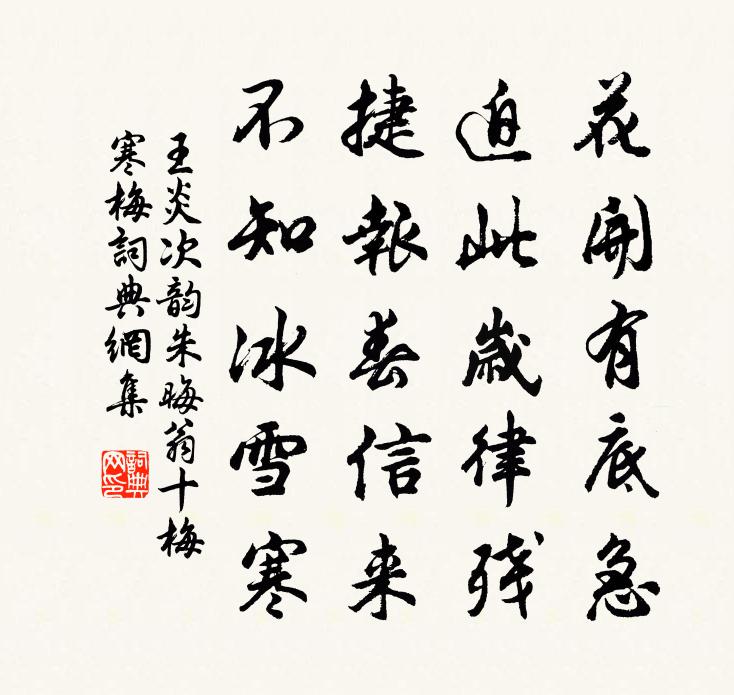 花開有底急
迫此歲律残
捷報春信来
不知冰雪寒
王炎次韵朱晦翁十梅
寒梅詞典網集
詞典
网印